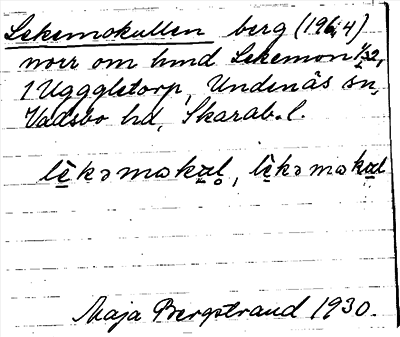 Lekemokullen berg (196,4)
norr om hmd Lekemon 1/32,
1 Uggletorp, Undenäs sn,
Vadsbo hd, Skarab. l.
lēkəmoku̲l̥, lēkəmoku̲l
Maja Bergstrand 1930.